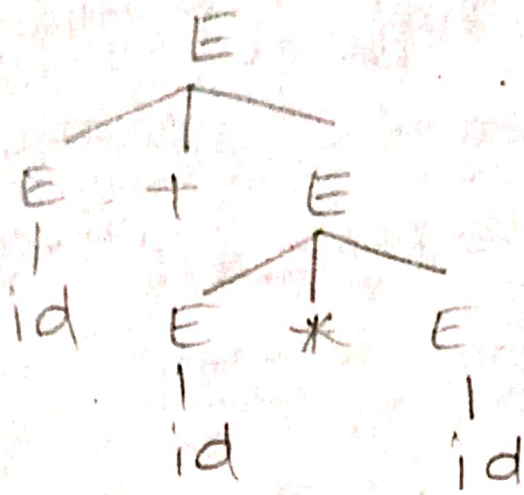 E
E + E
id E * E
id id